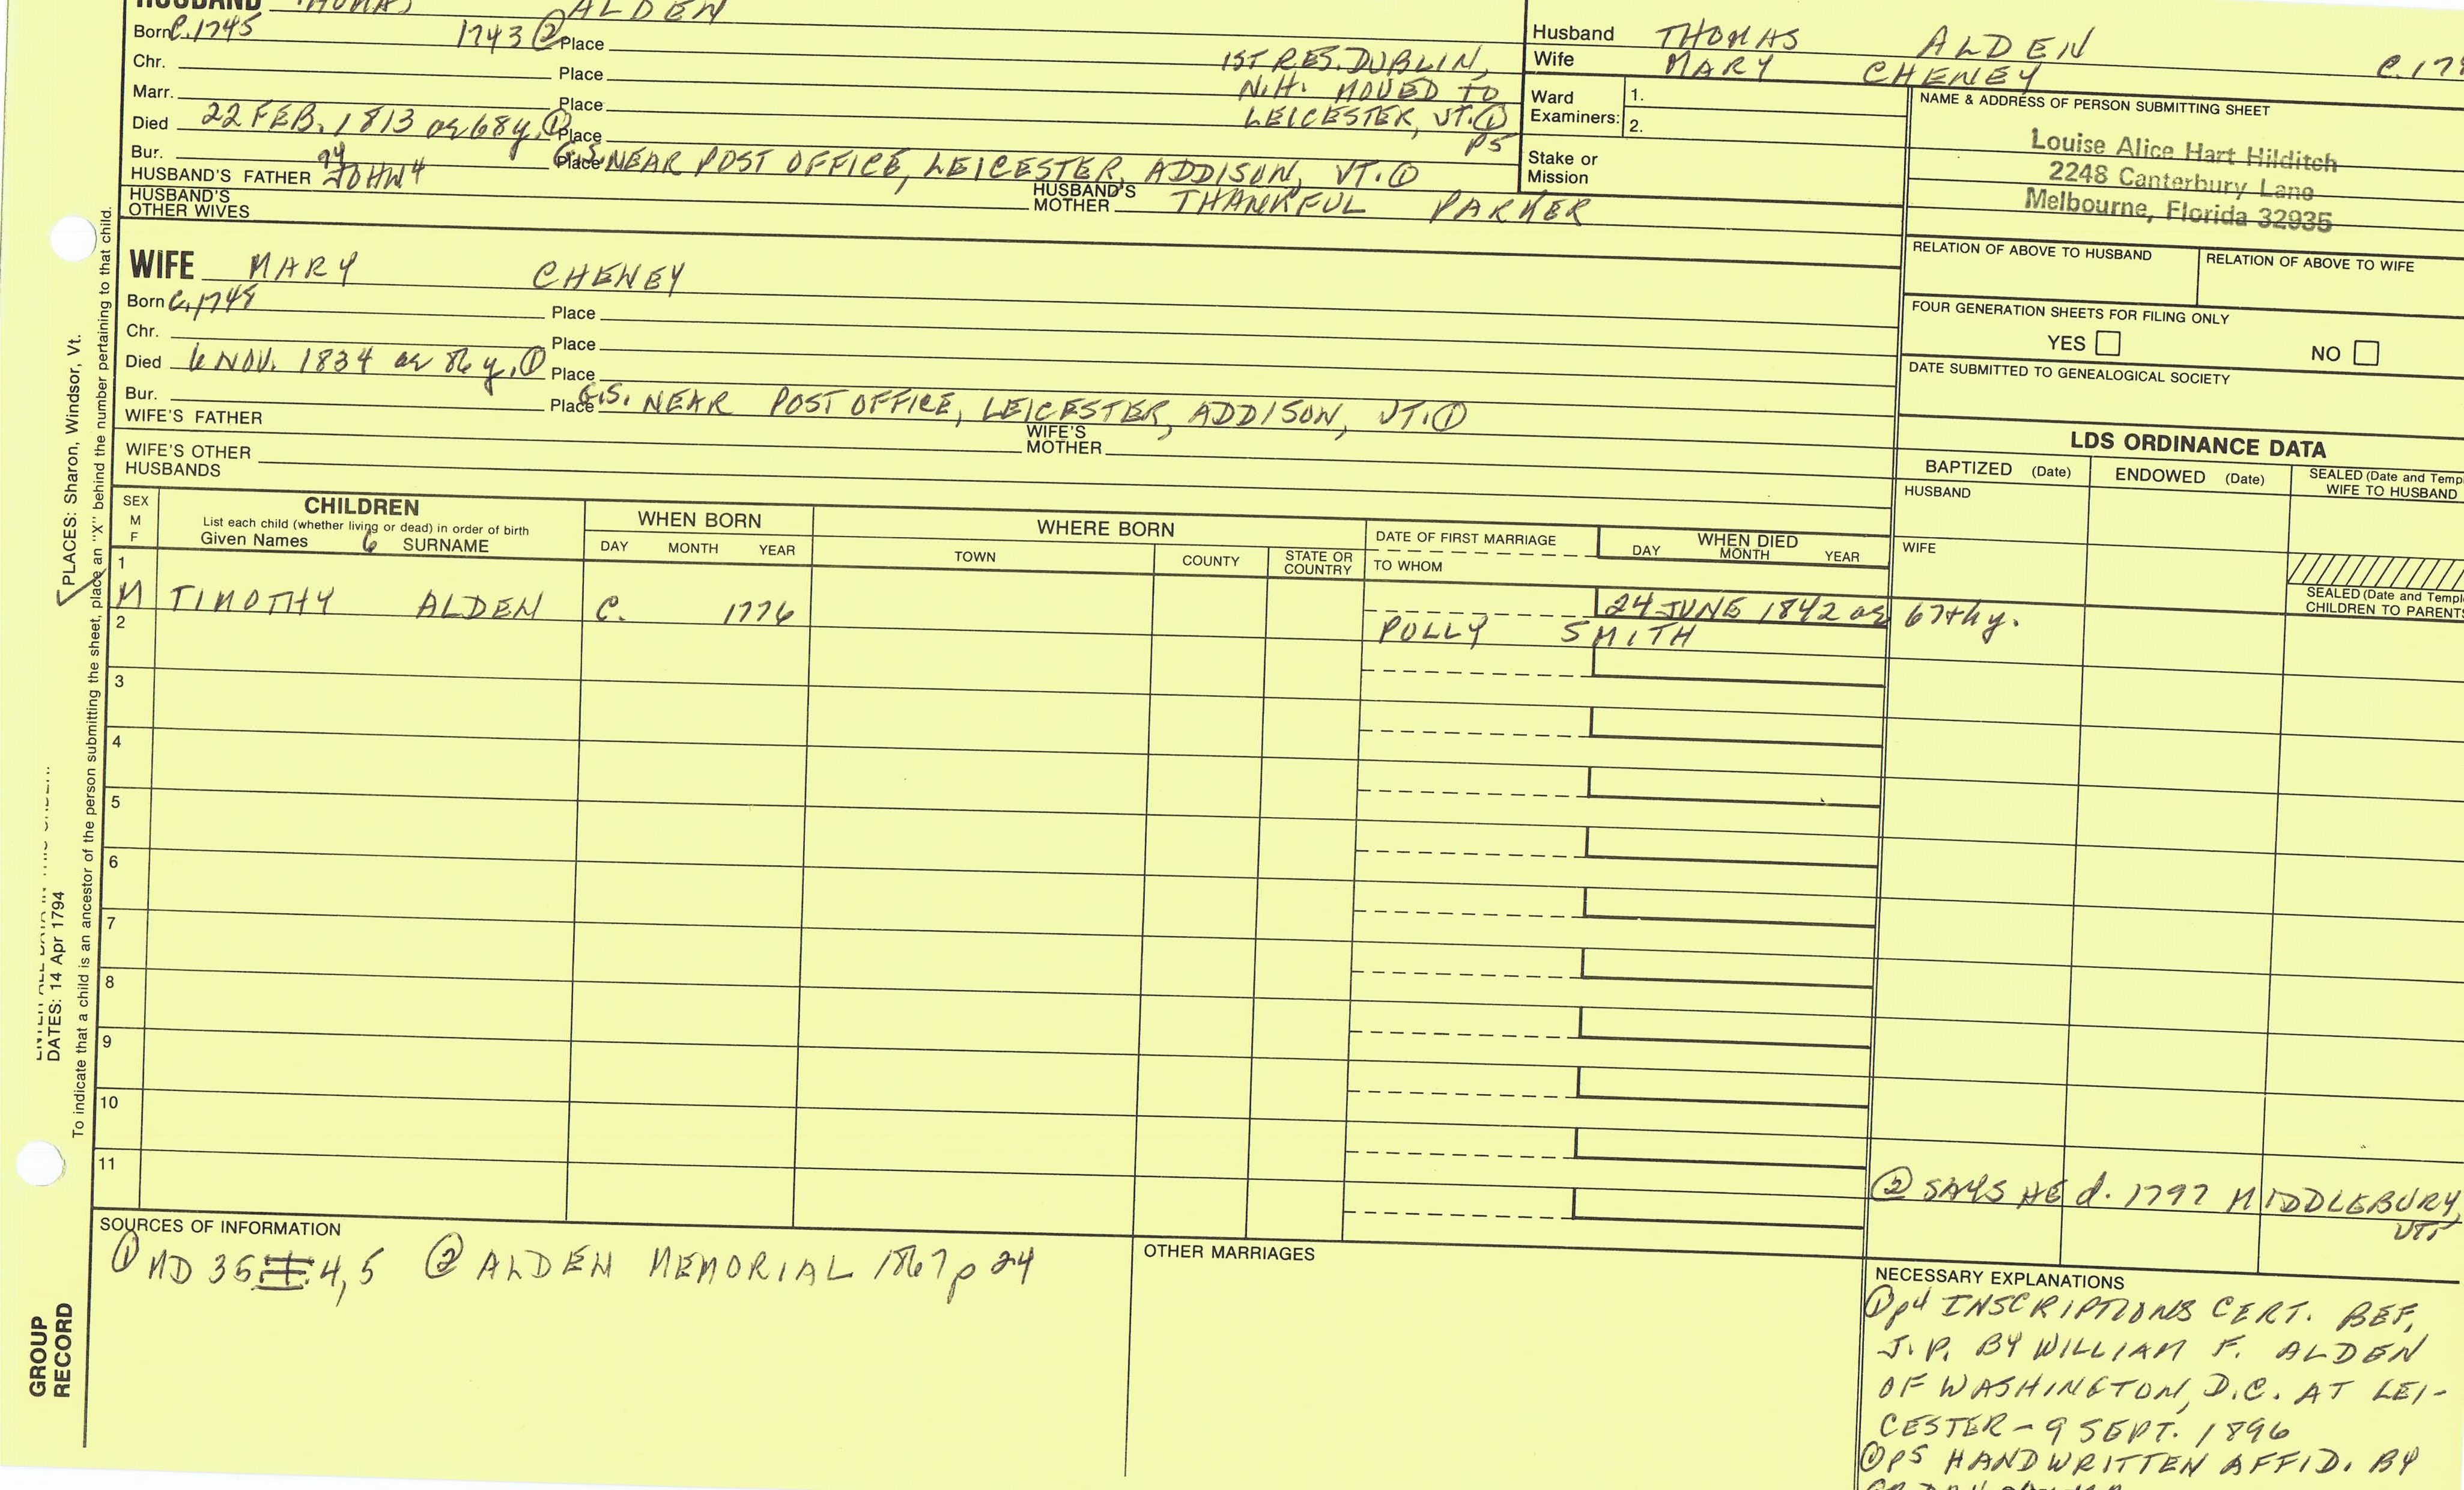 HUSBAND THOMAS ALDEN
Born C.1745 1743 ② Place
Chr. Place
1ST RES. DUBLIN,
Marr. Place
N.H. MOVED TO
Died 22 FEB. 1813 as 68 y. ① Place
LEICESTER, VT. ①
P5
Bur. Place G.S. NEAR POST OFFICE, LEICESTER, ADDISON, VT. ①
HUSBAND'S FATHER JOHN 4
HUSBAND'S MOTHER THANKFUL PARKER
HUSBAND'S OTHER WIVES
WIFE MARY CHENEY
Born C.1748 Place
Chr. Place
Died 6 NOV. 1834 as 86 y. ① Place
Bur. Place G.S. NEAR POST OFFICE, LEICESTER, ADDISON, VT. ①
WIFE'S FATHER
WIFE'S MOTHER
WIFE'S OTHER HUSBANDS
Husband THOMAS ALDEN C.17
Wife MARY CHENEY
Ward Examiners: 1.
2.
Stake or Mission
NAME & ADDRESS OF PERSON SUBMITTING SHEET
Louise Alice Hart Hilditch
2248 Canterbury Lane
Melbourne, Florida 32935
RELATION OF ABOVE TO HUSBAND RELATION OF ABOVE TO WIFE
FOUR GENERATION SHEETS FOR FILING ONLY
YES NO
DATE SUBMITTED TO GENEALOGICAL SOCIETY
LDS ORDINANCE DATA
BAPTIZED (Date) ENDOWED (Date) SEALED (Date and Temp
WIFE TO HUSBAND
HUSBAND
WIFE
SEALED (Date and Templ
CHILDREN TO PARENTS
SEX
M
F
CHILDREN
List each child (whether living or dead) in order of birth
Given Names 6 SURNAME
WHEN BORN
DAY MONTH YEAR
WHERE BORN
TOWN COUNTY STATE OR COUNTRY
DATE OF FIRST MARRIAGE
TO WHOM
WHEN DIED
DAY MONTH YEAR
1
M TIMOTHY ALDEN C. 1776 24 JUNE 1842 as 67th y.
POLLY SMITH
2
3
4
5
6
7
8
9
10
11
② SAYS HE d. 1797 MIDDLEBURY,
VT.
SOURCES OF INFORMATION
① MD 35 4,5 ② ALDEN MEMORIAL 1867 p 24
OTHER MARRIAGES
NECESSARY EXPLANATIONS
① p4 INSCRIPTIONS CERT. BEF.
J.P. BY WILLIAM F. ALDEN
OF WASHINGTON, D.C. AT LEI-
CESTER - 9 SEPT. 1896
① P5 HANDWRITTEN AFFID. BY
PLACES: Sharon, Windsor, Vt.
DATES: 14 Apr 1794
To indicate that a child is an ancestor of the person submitting the sheet, place an "X" behind the number pertaining to that child.
GROUP
RECORD